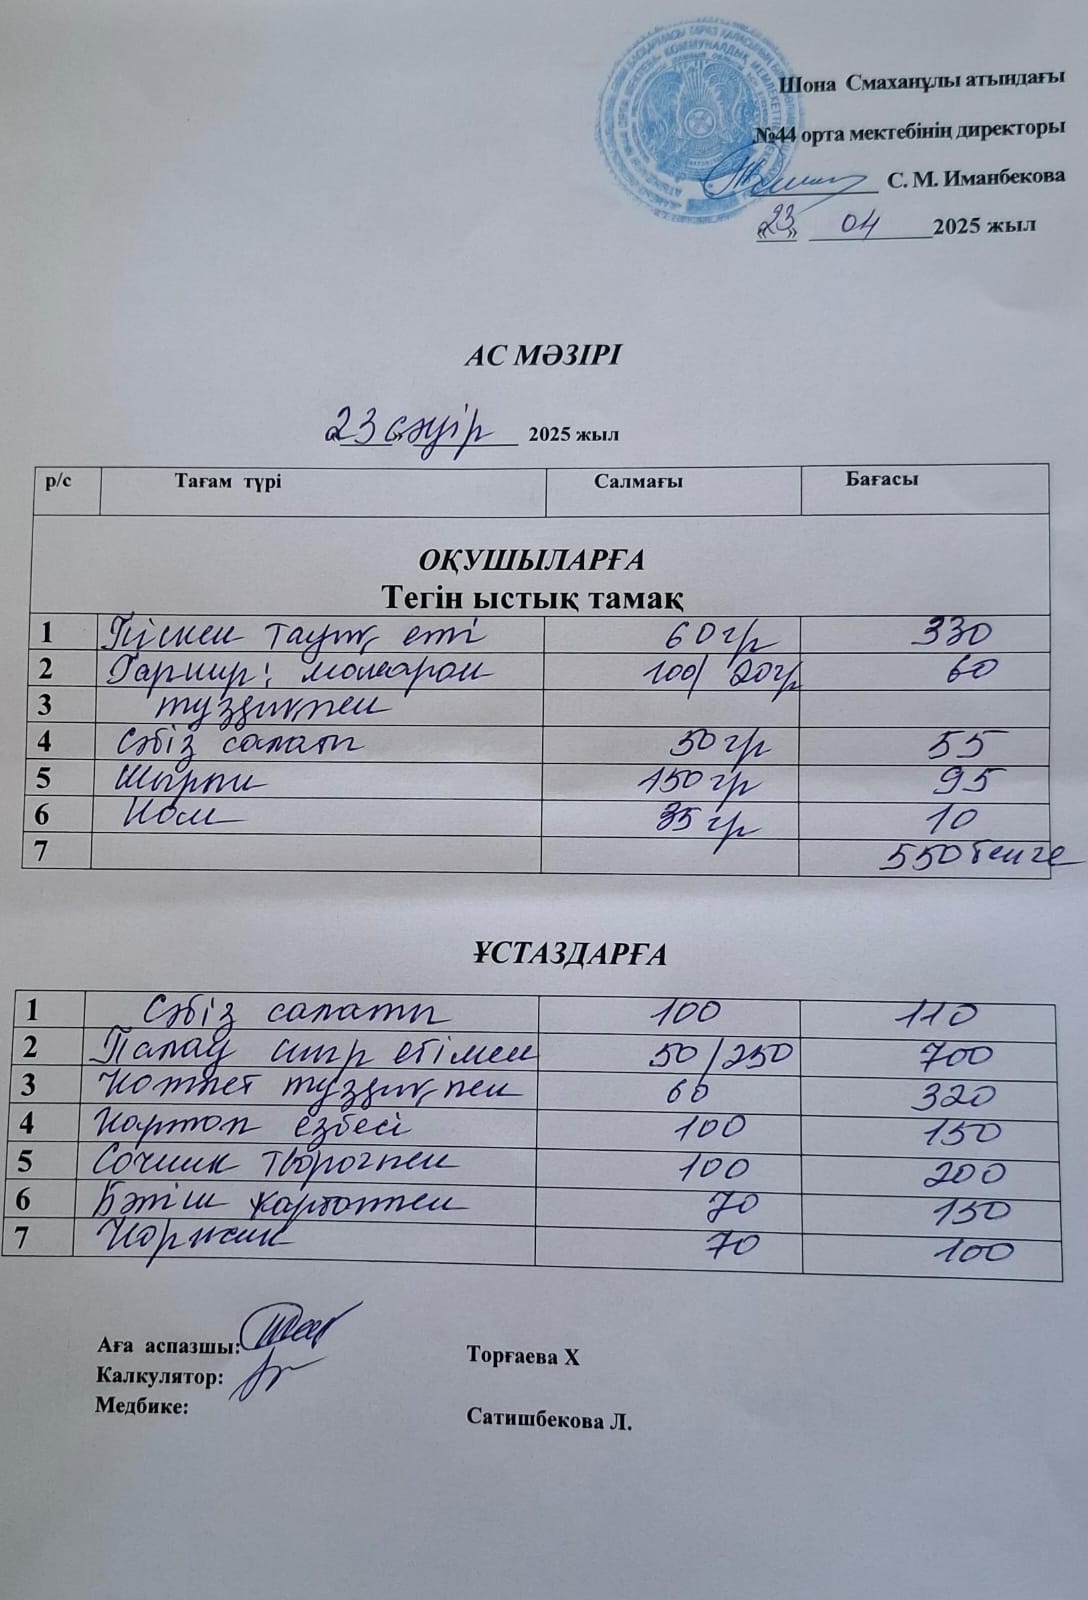 Шона Смаханұлы атындағы
№44 орта мектебінің директоры
С. М. Иманбекова
«23» 04 2025 жыл
АС МӘЗІРІ
«23» сәуір 2025 жыл
р/с Тағам түрі Салмағы Бағасы
ОҚУШЫЛАРҒА
Тегін ыстық тамақ
1 Піскен тауық еті 60 гр 330
2 Гарнир: макарон 100/20гр 60
3 тұздықпен
4 Сәбіз салаты 50 гр 55
5 Шырын 150 гр 95
6 Нан 35 гр 10
7 550 тенге
ҰСТАЗДАРҒА
1 Сәбіз салаты 100 110
2 Палау сиыр етімен 50/250 700
3 Котлет тұздықпен 60 320
4 Картоп езбесі 100 150
5 Сочник творогпен 100 200
6 Бәтіш картоппен 70 150
7 Коржик 70 100
Аға аспазшы: Торғаева Х
Калкулятор:
Медбике: Сатишбекова Л.